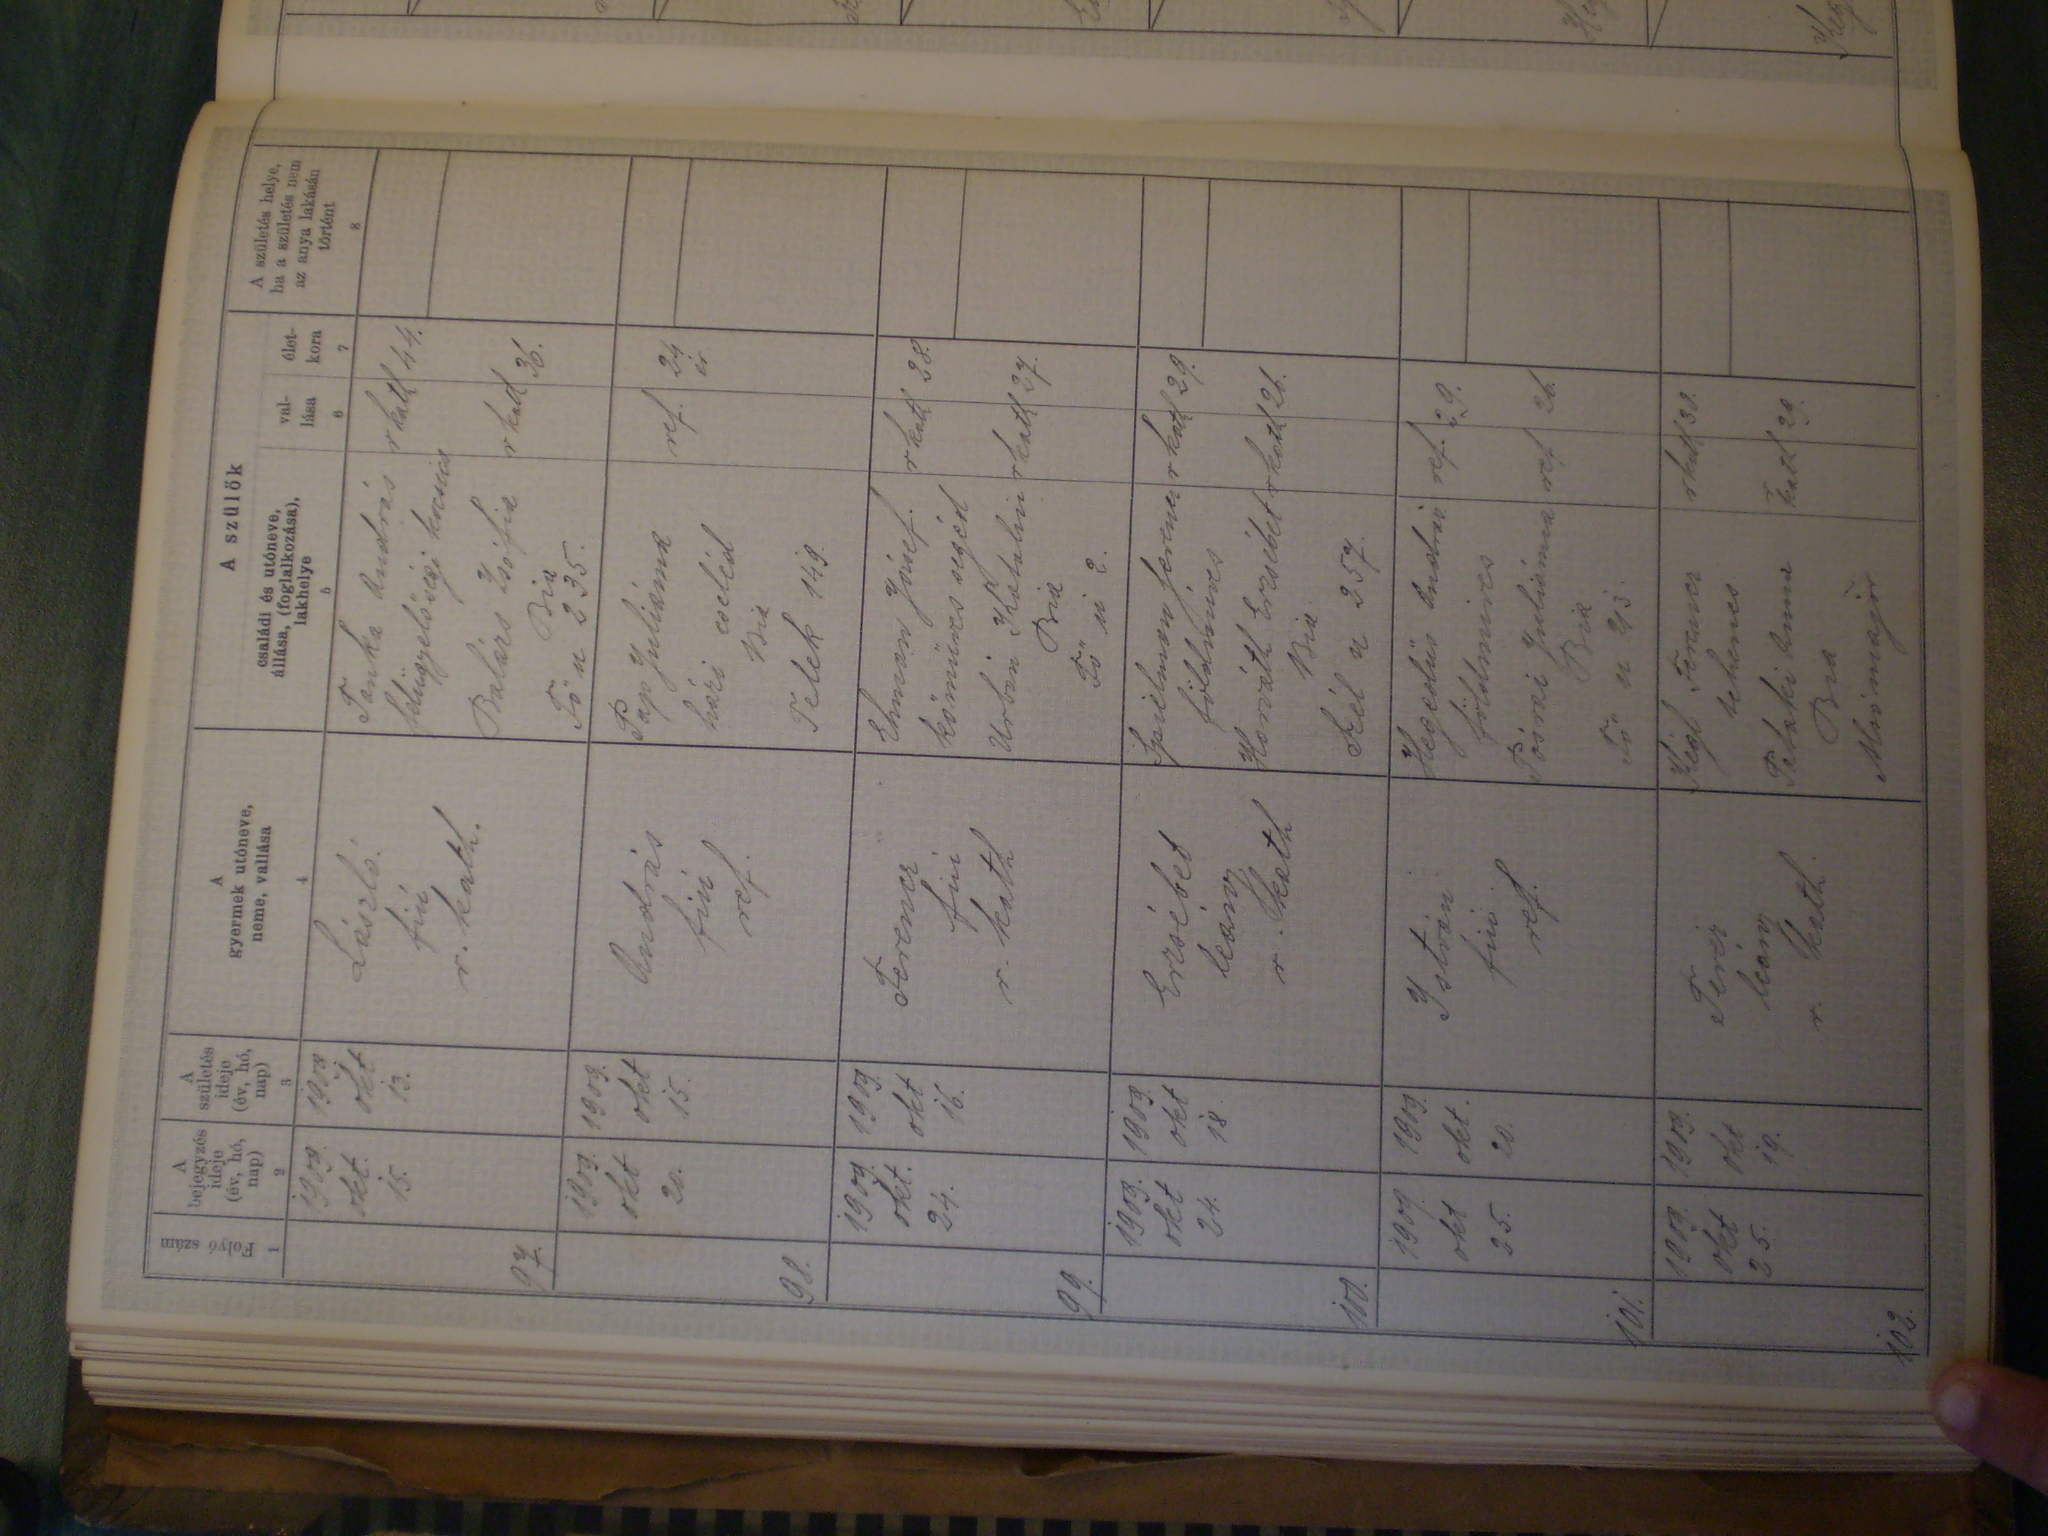 A szülők
Folyó szám
A
bejegyzés
ideje
(év, hó,
nap)
A
születés
ideje
(év, hó,
nap)
A
gyermek utóneve,
neme, vallása
családi és utóneve,
állása, (foglalkozása),
lakhelye
val-
lása
élet-
kora
A születés helye,
ha a születés nem
az anya lakásán
történt
1
2
3
4
5
6
7
8
97.
1909.
okt.
15.
1909
okt
13.
László.
fiú
r. kath.
András r kath 44.
kocsis
Balázs Zsófia r kath 36.
Bia
Fő u 235.
98.
1909.
okt
20.
1909.
okt
15.
András
fiú
ref.
Pap Juliánna ref. 24
házi cseléd
Bia
Telek 149.
99.
1909.
okt.
24.
1909.
okt
16.
Ferencz
fiú
r. kath
Ehman József. r kath 28.
kőműves segéd
Urbán Katalin r kath 27.
Bia
Fő u 2.
100.
1909.
okt
24.
1909.
okt
18
Erzsébet
leány
r. kath
Spielman Ferencz r kath 29.
földmíves
Horváth Erzsébet r kath 26.
Bia
Szél u 257.
101.
1909.
okt
25.
1909.
okt.
20.
István
fiú
ref.
Hegedűs András ref. 29.
földmíves
Juliánna ref 26.
Bia
Fő u 93.
102.
1909.
okt
25.
1909.
okt
19.
Teréz
leány
r. kath.
Ferencz r kath 38.
tehenes
Pataki Anna r kath 29.
Bia